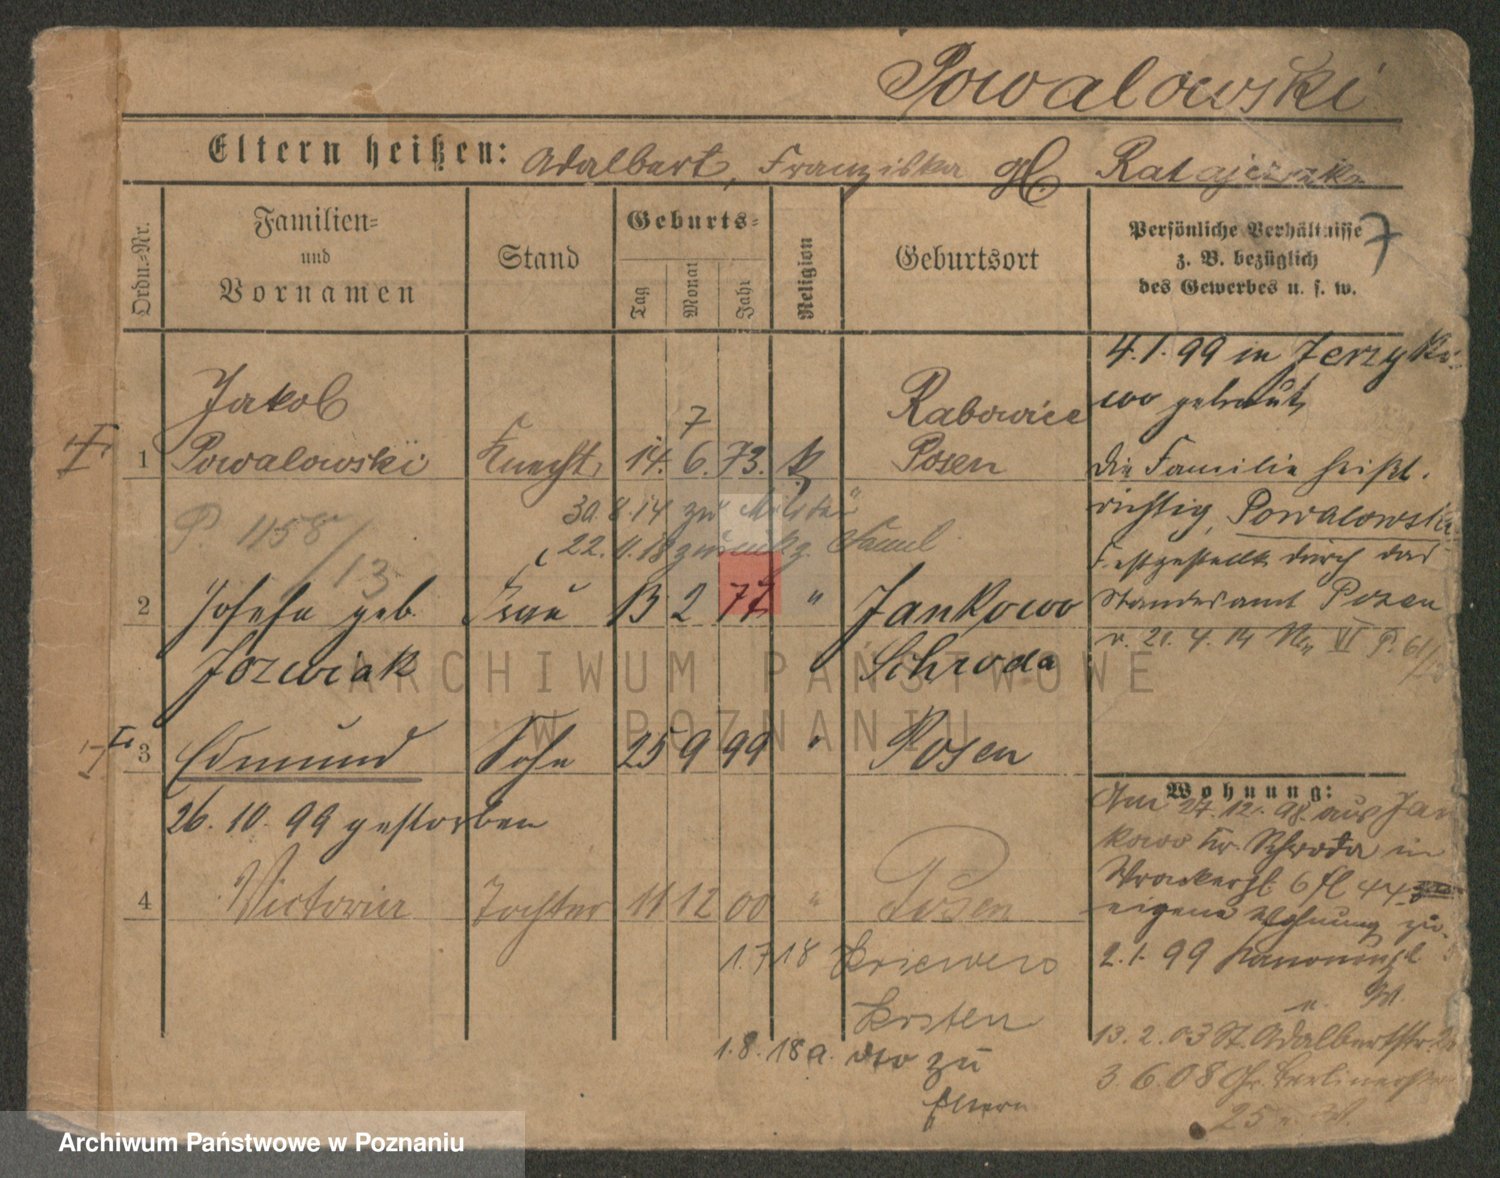 Powalowski
Eltern heißen: Adalbert, Franziska Ratajczak
Ordn.-Nr.
Familien-
und
Vornamen
Stand
Geburts-
Tag
Monat
Jahr
Religion
Geburtsort
Persönliche Verhältnisse
z. B. bezüglich
des Gewerbes u. s. w.
7
Jakob
7
Rabowice
1 Powalowski Knecht 14. 6. 73. k Posen
4.1.99 in Jerzyko-
wo getraut
die Familie heißt
richtig Powalowski
Festgestellt durch das
Standesamt Posen
v. 21.4.14 VI P. 61/
P. 1158/13
30.8.14 zu Militär
22.11.18 zurück
2 Josefa geb. Frau 13 2 77 " Jankowo
Jozwiak Schroda
3 Edmund Sohn 25 9 99 " Posen
26.10.99 gestorben
4 Victoria Tochter 11 12 00 " Posen
1.7.18 Kriewen
Kosten
1.8.18 a. dto zu
Eltern
Wohnung:
Am 27.12.98. aus Jan
kowo Kr. Schroda in
6 44
eigene Wohnung zu.
2.1.99
13.2.03 St. Adalbertstr.
3.6.08 Gr. Berlinerstr
25
ARCHIWUM PAŃSTWOWE
W POZNANIU
Archiwum Państwowe w Poznaniu